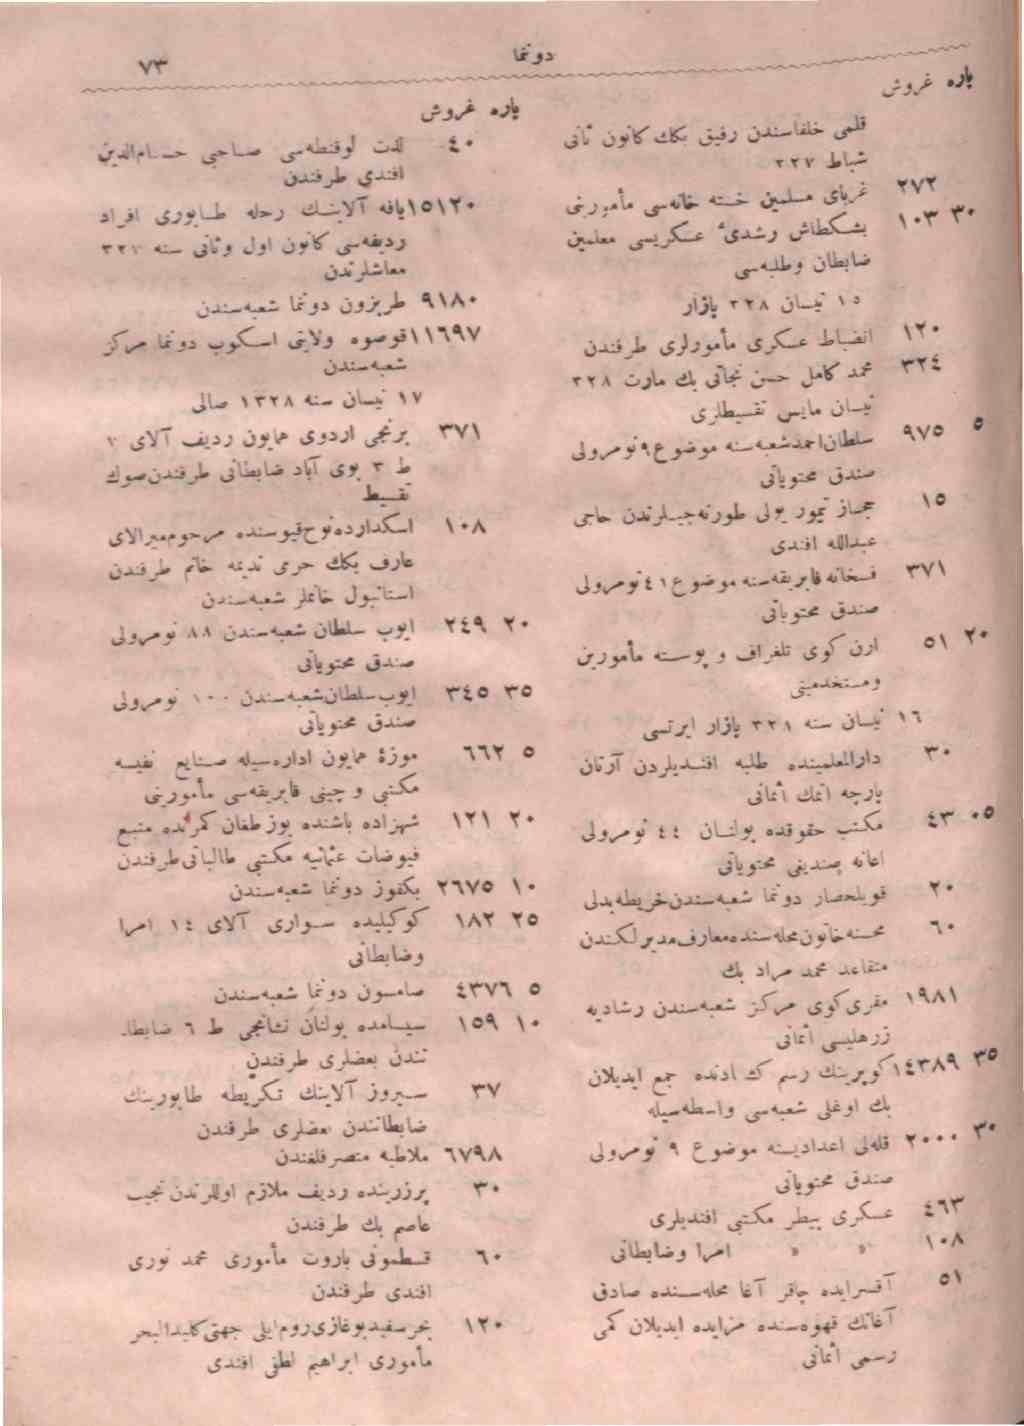 دوننما
٧٣
پاره غروش
قلمی خلفاسندن رفیق بكك كانون ثانی
شباط ٣٢٧
٢٧٢ غربای مسلمین خسته خانه‌سی مأمورینی
٣٠ ١٠٣ بشكطاش رشدیۀ عسكریسی معلمین
ضابطان وطلبه‌سی
١٥ نیسان ٣٢٨ پازار
١٢٠ انضباط عسكری مأمورلری طرفندن
٣٢٤ محمد كامل حسن نجاتی بك مارت ٣٢٨
نیسان مایس تقسیطلری
٥ ٩٧٥ سلطان احمد شعبه‌سنه موضوع ٩ نومرولی
صندق محتویاتی
١٥ حجاز تیمور یولی طورنه‌جیلرندن حاجی
عبدالله افندی
٣٧١ فسخانه فابریقه‌سنه موضوع ٤١ نومرولی
صندق محتویاتی
٢٠ ٥١ ارن كوی تلغراف و پوسته مأمورین
ومستخدمینی
١٦ نیسان سنه ٣٢٨ پازار ایرتسی
٣٠ دارالمعلمینده طلبه افندیلردن آرتان
پارچه اتمك اثمانی
٠٥ ٤٣ مكتب حقوقده بولنان ٤٤ نومرولی
اعانه صندیغی محتویاتی
٢٠ قویلحصار دوننما شعبه‌سندن خریطه بدلی
٦٠ محسنه خاتون محله‌سنده معارف مدیرلكندن
متقاعد محمد مراد بك
١٩٨١ مفری كوی مركز شعبه‌سندن رشادیه
زرهلیسی اثمانی
٣٥ ١٤٣٨٩ كوپرینك رسم كشادنده جمع ایدیلان
بك اوغلی شعبه‌سی واسطه‌سیله
٣٠ ٢٠٠٠ قله‌لی اعدادیسنه موضوع ٩ نومرولی
صندق محتویاتی
٤٦٣ عسكری بیطر مكتبی افندیلری
١٠٨ » » امرا وضابطانی
٥١ آقسرایده چاقر آغا محله‌سنده صادق
آغانك قهوه‌سنده مزایده ایدیلان كمی
رسمی اثمانی
پاره غروش
٤٠ لذت لوقنطه‌سی صاحبی حسام‌الدین
افندی طرفندن
١٥١٢٠ یافه آلاینك رحله طابوری افراد
ردیفه‌سی كانون اول وثانی سنه ٣٢٧
معاشلرندن
٩١٨٠ طربزون دوننما شعبه‌سندن
١١٦٩٧ قوصوه ولایتی اسكوب دوننما مركز
شعبه‌سندن
١٧ نیسان سنه ١٣٢٨ صالی
٣٧١ برنجی اردوی همایون ردیف آلای ٧
ط ٣ بوی آباد ضابطانی طرفندن صوك
تقسیط
١٠٨ اسكدارده نوح قپوسنده مرحوم میرالای
عارف بكك حرمی ندیمه خانم طرفندن
استانبول خانملر شعبه‌سندن
٢٠ ٢٤٩ ایوب سلطان شعبه‌سندن ٨٨ نومرولی
صندق محتویاتی
٣٥ ٣٤٥ ایوب سلطان شعبه‌سندن ١٠٠ نومرولی
صندق محتویاتی
٥ ٦٦٢ موزۀ همایون اداره‌سیله صنایع نفیسه
مكتبی و چینی فابریقه‌سی مأمورینی
٢٠ ١٢١ شهزاده باشنده بوز طغان كمرنده منبع
فیوضات عثمانیه مكتبی طالباتی طرفندن
١٠ ٢٦٧٥ بكقوز دوننما شعبه‌سندن
٢٥ ١٨٢ كوكبلیده سواری آلای ١٤ امرا
وضابطانی
٥ ٤٣٧٦ صامسون دوننما شعبه‌سندن
١٠ ١٥٩ سیسامده بولنان نشانجی ط ٦ ضابطا-
نندن بعضلری طرفندن
٣٧ سیروز آلاینك تكریطه طابورینك
ضابطانندن بعضلری طرفندن
٦٧٩٨ ملاطیه متصرفلغندن
٣٠ پرزرینده ردیف ملازم اوللرندن نجیب
عاصم بك طرفندن
٦٠ قسطمونی باروت مأموری محمد نوری
افندی طرفندن
١٢٠ بحرسفید بوغازی روم ایلی جهتی كلیدالبحر
مأموری ابراهیم لطفی افندی